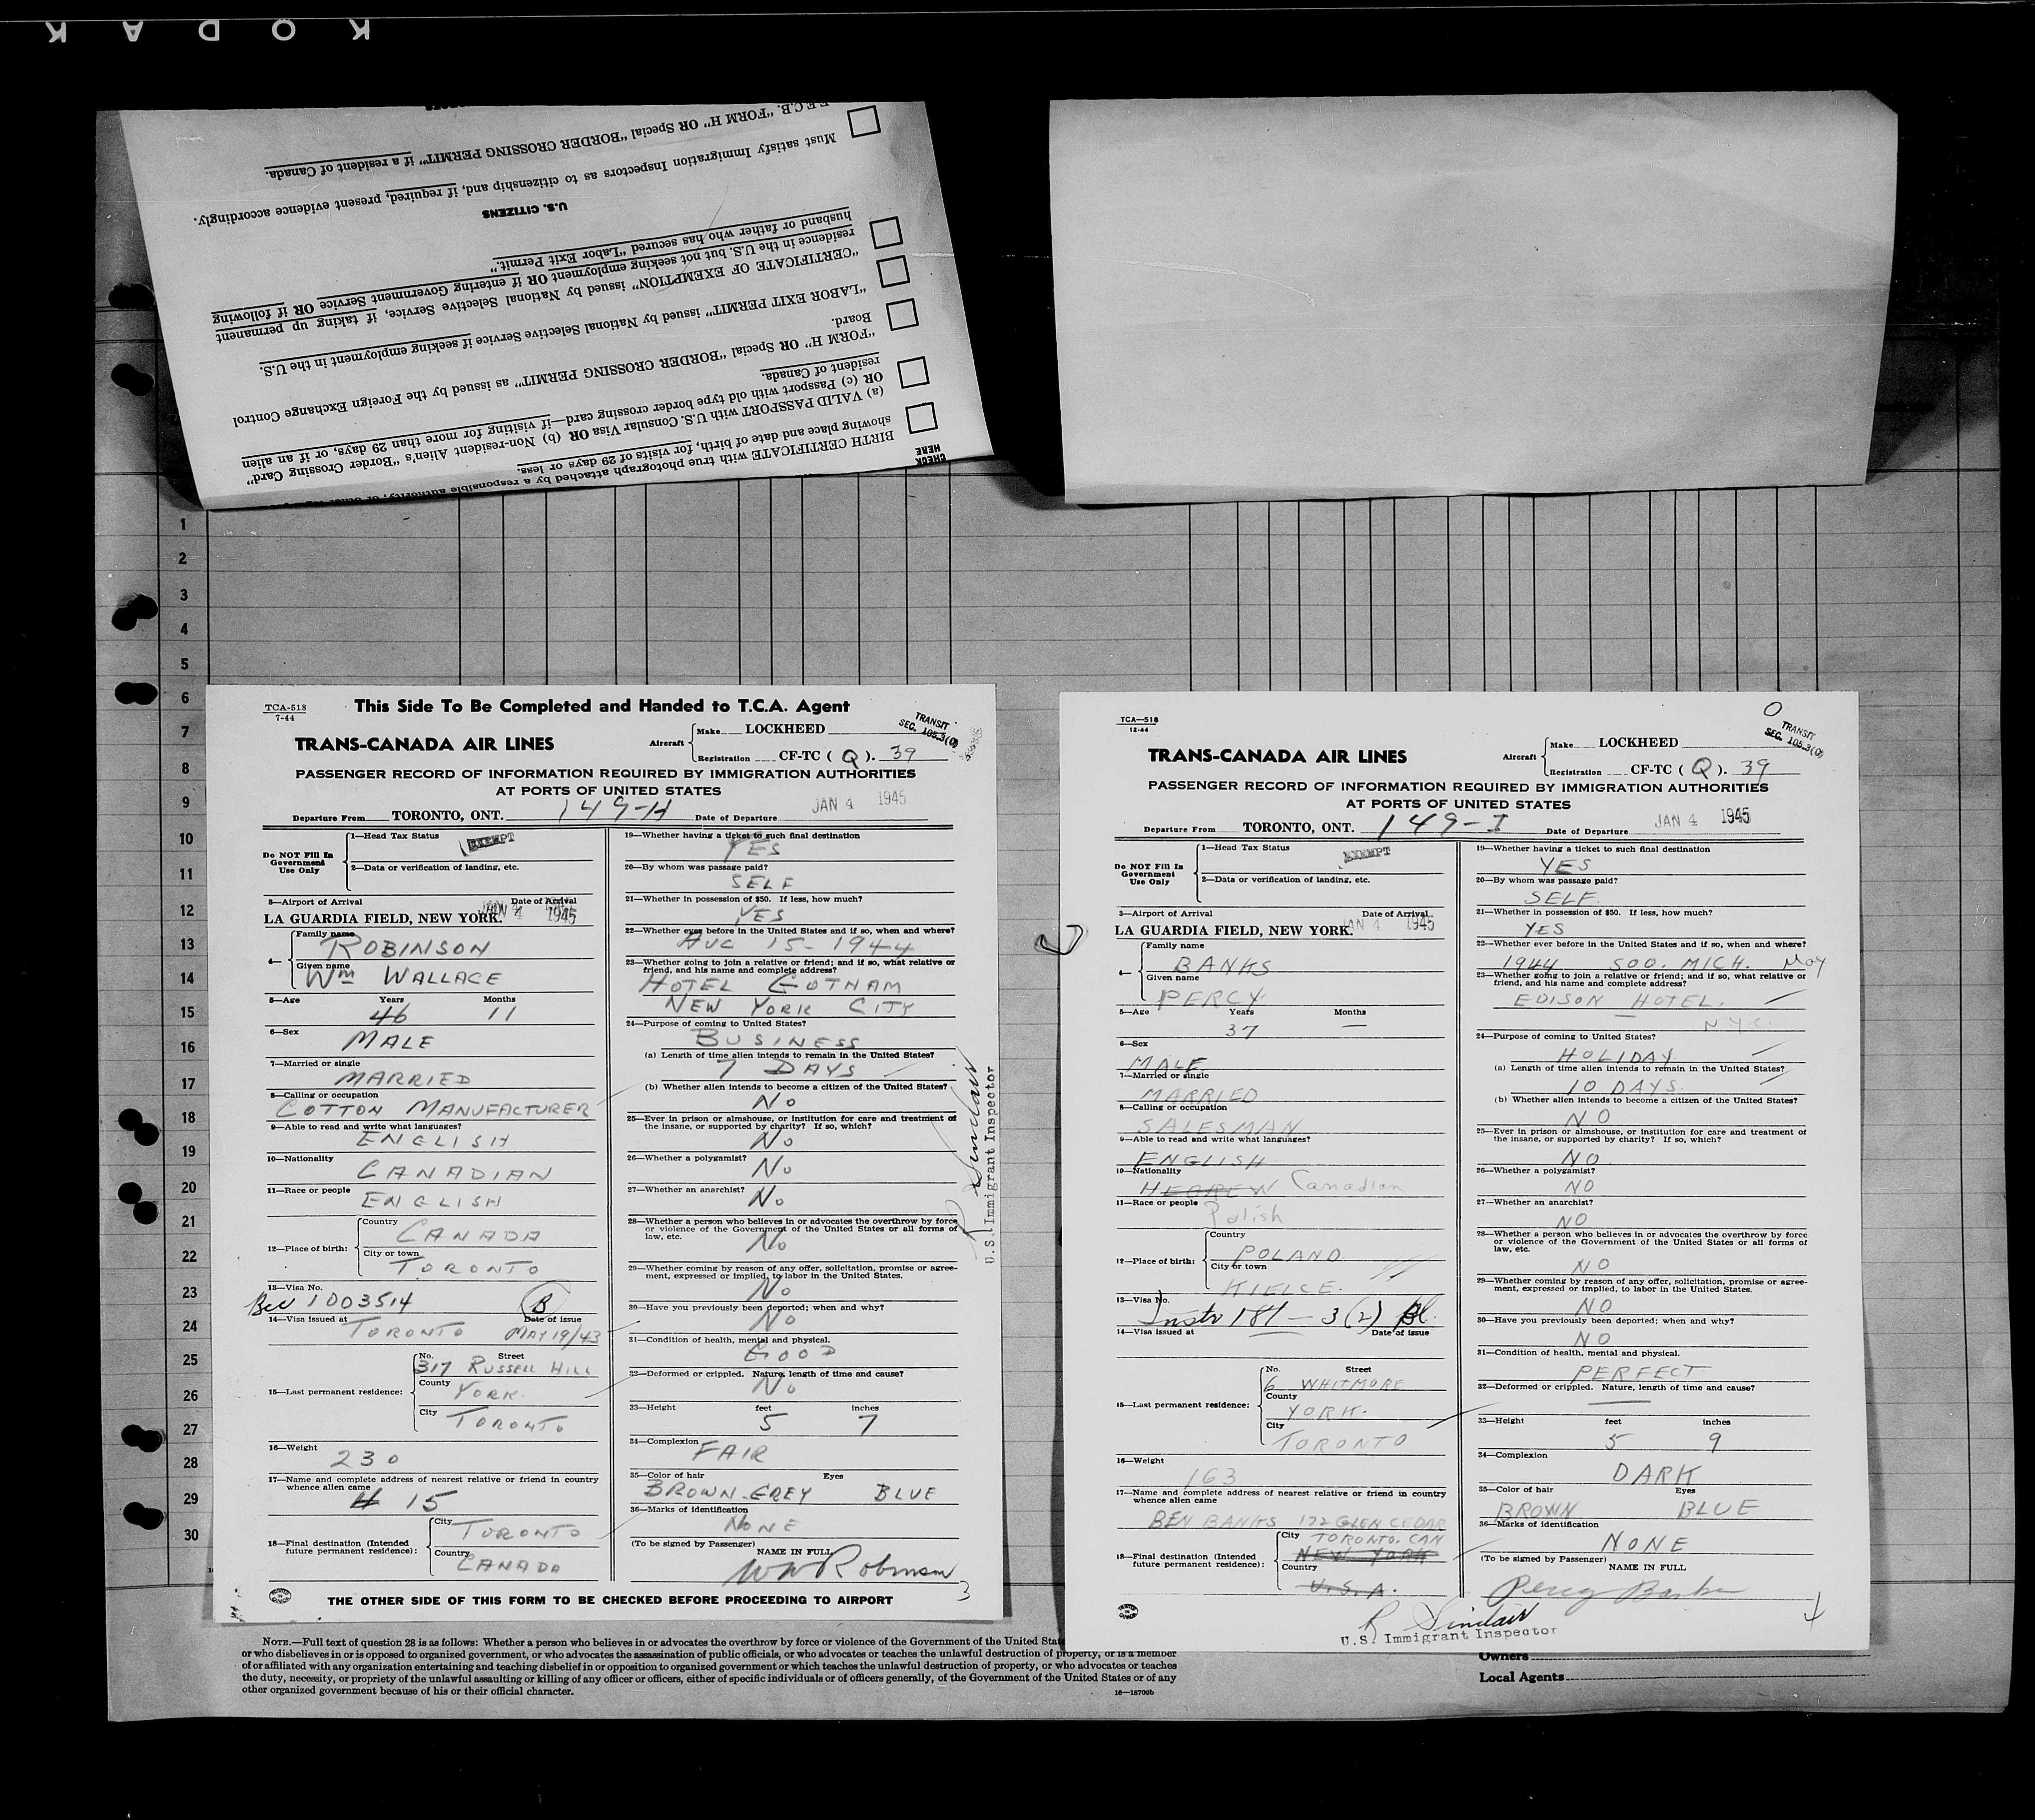 KODAK
BIRTH CERTIFICATE with true photograph attached by a responsible authority,
showing place and date of birth, for visits of 29 days or less.
CHECK
HERE
(a) VALID PASSPORT with U.S. Consular Visa OR (b) Non-resident Alien's "Border Crossing Card"
OR (c) Passport with old type border crossing card—if visiting for more than 29 days, or if an alien
resident of Canada.
"FORM H" OR Special "BORDER CROSSING PERMIT" as issued by the Foreign Exchange Control
Board.
"LABOR EXIT PERMIT" issued by National Selective Service if seeking employment in the U.S.
"CERTIFICATE OF EXEMPTION" issued by National Selective Service, if taking up permanent
residence in the U.S. but not seeking employment OR if entering Government Service OR if following
husband or father who has secured "Labor Exit Permit."
U.S. CITIZENS
Must satisfy Immigration Inspectors as to citizenship and, if required, present evidence accordingly.
F.E.C.B. "FORM H" OR Special "BORDER CROSSING PERMIT" if a resident of Canada.
1
2
3
4
5
6
7
8
9
10
11
12
13
14
15
16
17
18
19
20
21
22
23
24
25
26
27
28
29
30
TCA-518
7-44
This Side To Be Completed and Handed to T.C.A. Agent
TRANS-CANADA AIR LINES
Aircraft
Make LOCKHEED
Registration CF-TC ( Q ). 39
TRANSIT
SEC. 105.3(0)
PASSENGER RECORD OF INFORMATION REQUIRED BY IMMIGRATION AUTHORITIES
AT PORTS OF UNITED STATES
Departure From TORONTO, ONT. 149-H Date of Departure JAN 4 1945
Do NOT Fill In
Government
Use Only
1—Head Tax Status EXEMPT
2—Data or verification of landing, etc.
3—Airport of Arrival Date of Arrival
LA GUARDIA FIELD, NEW YORK. JAN 4 1945
4—
Family name
ROBINSON
Given name
Wm WALLACE
5—Age Years Months
46 11
6—Sex
MALE
7—Married or single
MARRIED
8—Calling or occupation
COTTON MANUFACTURER
9—Able to read and write what languages?
ENGLISH
10—Nationality
CANADIAN
11—Race or people
ENGLISH
12—Place of birth:
Country
CANADA
City or town
TORONTO
13—Visa No.
1003514 (B)
14—Visa issued at Date of issue
TORONTO MAY 19/43
15—Last permanent residence:
No. Street
317 RUSSELL HILL
County
YORK
City
TORONTO
16—Weight
230
17—Name and complete address of nearest relative or friend in country
whence alien came
15
18—Final destination (Intended
future permanent residence):
City
TORONTO
Country
CANADA
19—Whether having a ticket to such final destination
YES
20—By whom was passage paid?
SELF
21—Whether in possession of $50. If less, how much?
YES
22—Whether ever before in the United States and if so, when and where?
AUG 15 - 1944
23—Whether going to join a relative or friend; and if so, what relative or
friend, and his name and complete address?
HOTEL GOTHAM
NEW YORK CITY
24—Purpose of coming to United States?
BUSINESS
(a) Length of time alien intends to remain in the United States?
7 DAYS
(b) Whether alien intends to become a citizen of the United States?
NO
25—Ever in prison or almshouse, or institution for care and treatment of
the insane, or supported by charity? If so, which?
NO
26—Whether a polygamist?
NO
27—Whether an anarchist?
NO
28—Whether a person who believes in or advocates the overthrow by force
or violence of the Government of the United States or all forms of
law, etc.
NO
29—Whether coming by reason of any offer, solicitation, promise or agree-
ment, expressed or implied, to labor in the United States.
NO
30—Have you previously been deported; when and why?
NO
31—Condition of health, mental and physical.
GOOD
32—Deformed or crippled. Nature, length of time and cause?
NO
33—Height feet inches
5 7
34—Complexion
FAIR
35—Color of hair Eyes
BROWN-GREY BLUE
36—Marks of identification
NONE
(To be signed by Passenger) NAME IN FULL
WW Robinson
3
R Sinclair
U.S. Immigrant Inspector
THE OTHER SIDE OF THIS FORM TO BE CHECKED BEFORE PROCEEDING TO AIRPORT
TCA—518
12-44
TRANS-CANADA AIR LINES
Aircraft
Make LOCKHEED
Registration CF-TC ( Q ). 39
TRANSIT
SEC. 105.3(0)
PASSENGER RECORD OF INFORMATION REQUIRED BY IMMIGRATION AUTHORITIES
AT PORTS OF UNITED STATES
Departure From TORONTO, ONT. 149-I Date of Departure JAN 4 1945
Do NOT Fill In
Government
Use Only
1—Head Tax Status EXEMPT
2—Data or verification of landing, etc.
3—Airport of Arrival Date of Arrival
LA GUARDIA FIELD, NEW YORK. JAN 4 1945
4—
Family name
BANKS
Given name
PERCY
5—Age Years Months
37 —
6—Sex
MALE
7—Married or single
MARRIED
8—Calling or occupation
SALESMAN
9—Able to read and write what languages?
ENGLISH
10—Nationality
HEBREW Canadian
11—Race or people
Polish
12—Place of birth:
Country
POLAND
City or town
KIELCE.
13—Visa No.
Instr 181 - 3(2)
14—Visa issued at Date of issue
15—Last permanent residence:
No. Street
6 WHITMORE
County
YORK.
City
TORONTO
16—Weight
163
17—Name and complete address of nearest relative or friend in country
whence alien came
BEN BANKS 172 GLEN CEDAR
TORONTO. CAN
18—Final destination (Intended
future permanent residence):
City
NEW YORK
Country
U.S.A.
19—Whether having a ticket to such final destination
YES
20—By whom was passage paid?
SELF
21—Whether in possession of $50. If less, how much?
YES
22—Whether ever before in the United States and if so, when and where?
1944 SOO. MICH. Nov
23—Whether going to join a relative or friend; and if so, what relative or
friend, and his name and complete address?
EDISON HOTEL.
NYC
24—Purpose of coming to United States?
HOLIDAY
(a) Length of time alien intends to remain in the United States?
10 DAYS
(b) Whether alien intends to become a citizen of the United States?
NO
25—Ever in prison or almshouse, or institution for care and treatment of
the insane, or supported by charity? If so, which?
NO
26—Whether a polygamist?
NO
27—Whether an anarchist?
NO
28—Whether a person who believes in or advocates the overthrow by force
or violence of the Government of the United States or all forms of
law, etc.
NO
29—Whether coming by reason of any offer, solicitation, promise or agree-
ment, expressed or implied, to labor in the United States.
NO
30—Have you previously been deported; when and why?
NO
31—Condition of health, mental and physical.
PERFECT
32—Deformed or crippled. Nature, length of time and cause?
—
33—Height feet inches
5 9
34—Complexion
DARK
35—Color of hair Eyes
BROWN BLUE
36—Marks of identification
NONE
(To be signed by Passenger) NAME IN FULL
Percy Banks
R Sinclair
U.S. Immigrant Inspector
NOTE.—Full text of question 28 is as follows: Whether a person who believes in or advocates the overthrow by force or violence of the Government of the United
or who disbelieves in or is opposed to organized government, or who advocates the assassination of public officials, or who advocates or teaches the unlawful destruction of property, or is a member
of or affiliated with any organization entertaining and teaching disbelief in or opposition to organized government or which teaches the unlawful destruction of property, or who advocates or teaches
the duty, necessity, or propriety of the unlawful assaulting or killing of any officer or officers, either of specific individuals or of officers generally, of the Government of the United States or of any
other organized government because of his or their official character.
16—18709b
Owners
Local Agents